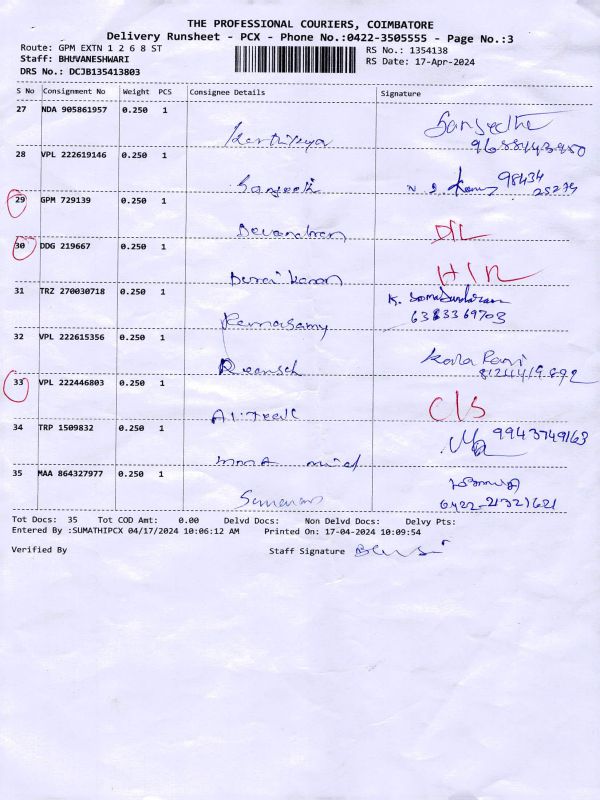 THE PROFESSIONAL COURIERS, COIMBATORE
Delivery Runsheet - PCX - Phone No.:0422-3505555 - Page No.:3
Route: GPM EXTN 1 2 6 8 ST RS No.: 1354138
Staff: BHUVANESHWARI RS Date: 17-Apr-2024
DRS No.: DCJB135413803
S No Consignment No Weight PCS Consignee Details Signature
27 NDA 905861957 0.250 1
Sangeetha
28 VPL 222619146 0.250 1
Sangeeth 98434
29 GPM 729139 0.250 1
Devandran D/L
30 DDG 219667 0.250 1
Durai kannan
31 TRZ 270030718 0.250 1
K. Somasundaram
Ramasamy
32 VPL 222615356 0.250 1
Kala Rani
33 VPL 222446803 0.250 1
C/S
34 TRP 1509832 0.250 1
9943749163
35 MAA 864327977 0.250 1
0422-2321621
Tot Docs: 35 Tot COD Amt: 0.00 Delvd Docs: Non Delvd Docs: Delvy Pts:
Entered By :SUMATHIPCX 04/17/2024 10:06:12 AM Printed On: 17-04-2024 10:09:54
Verified By Staff Signature